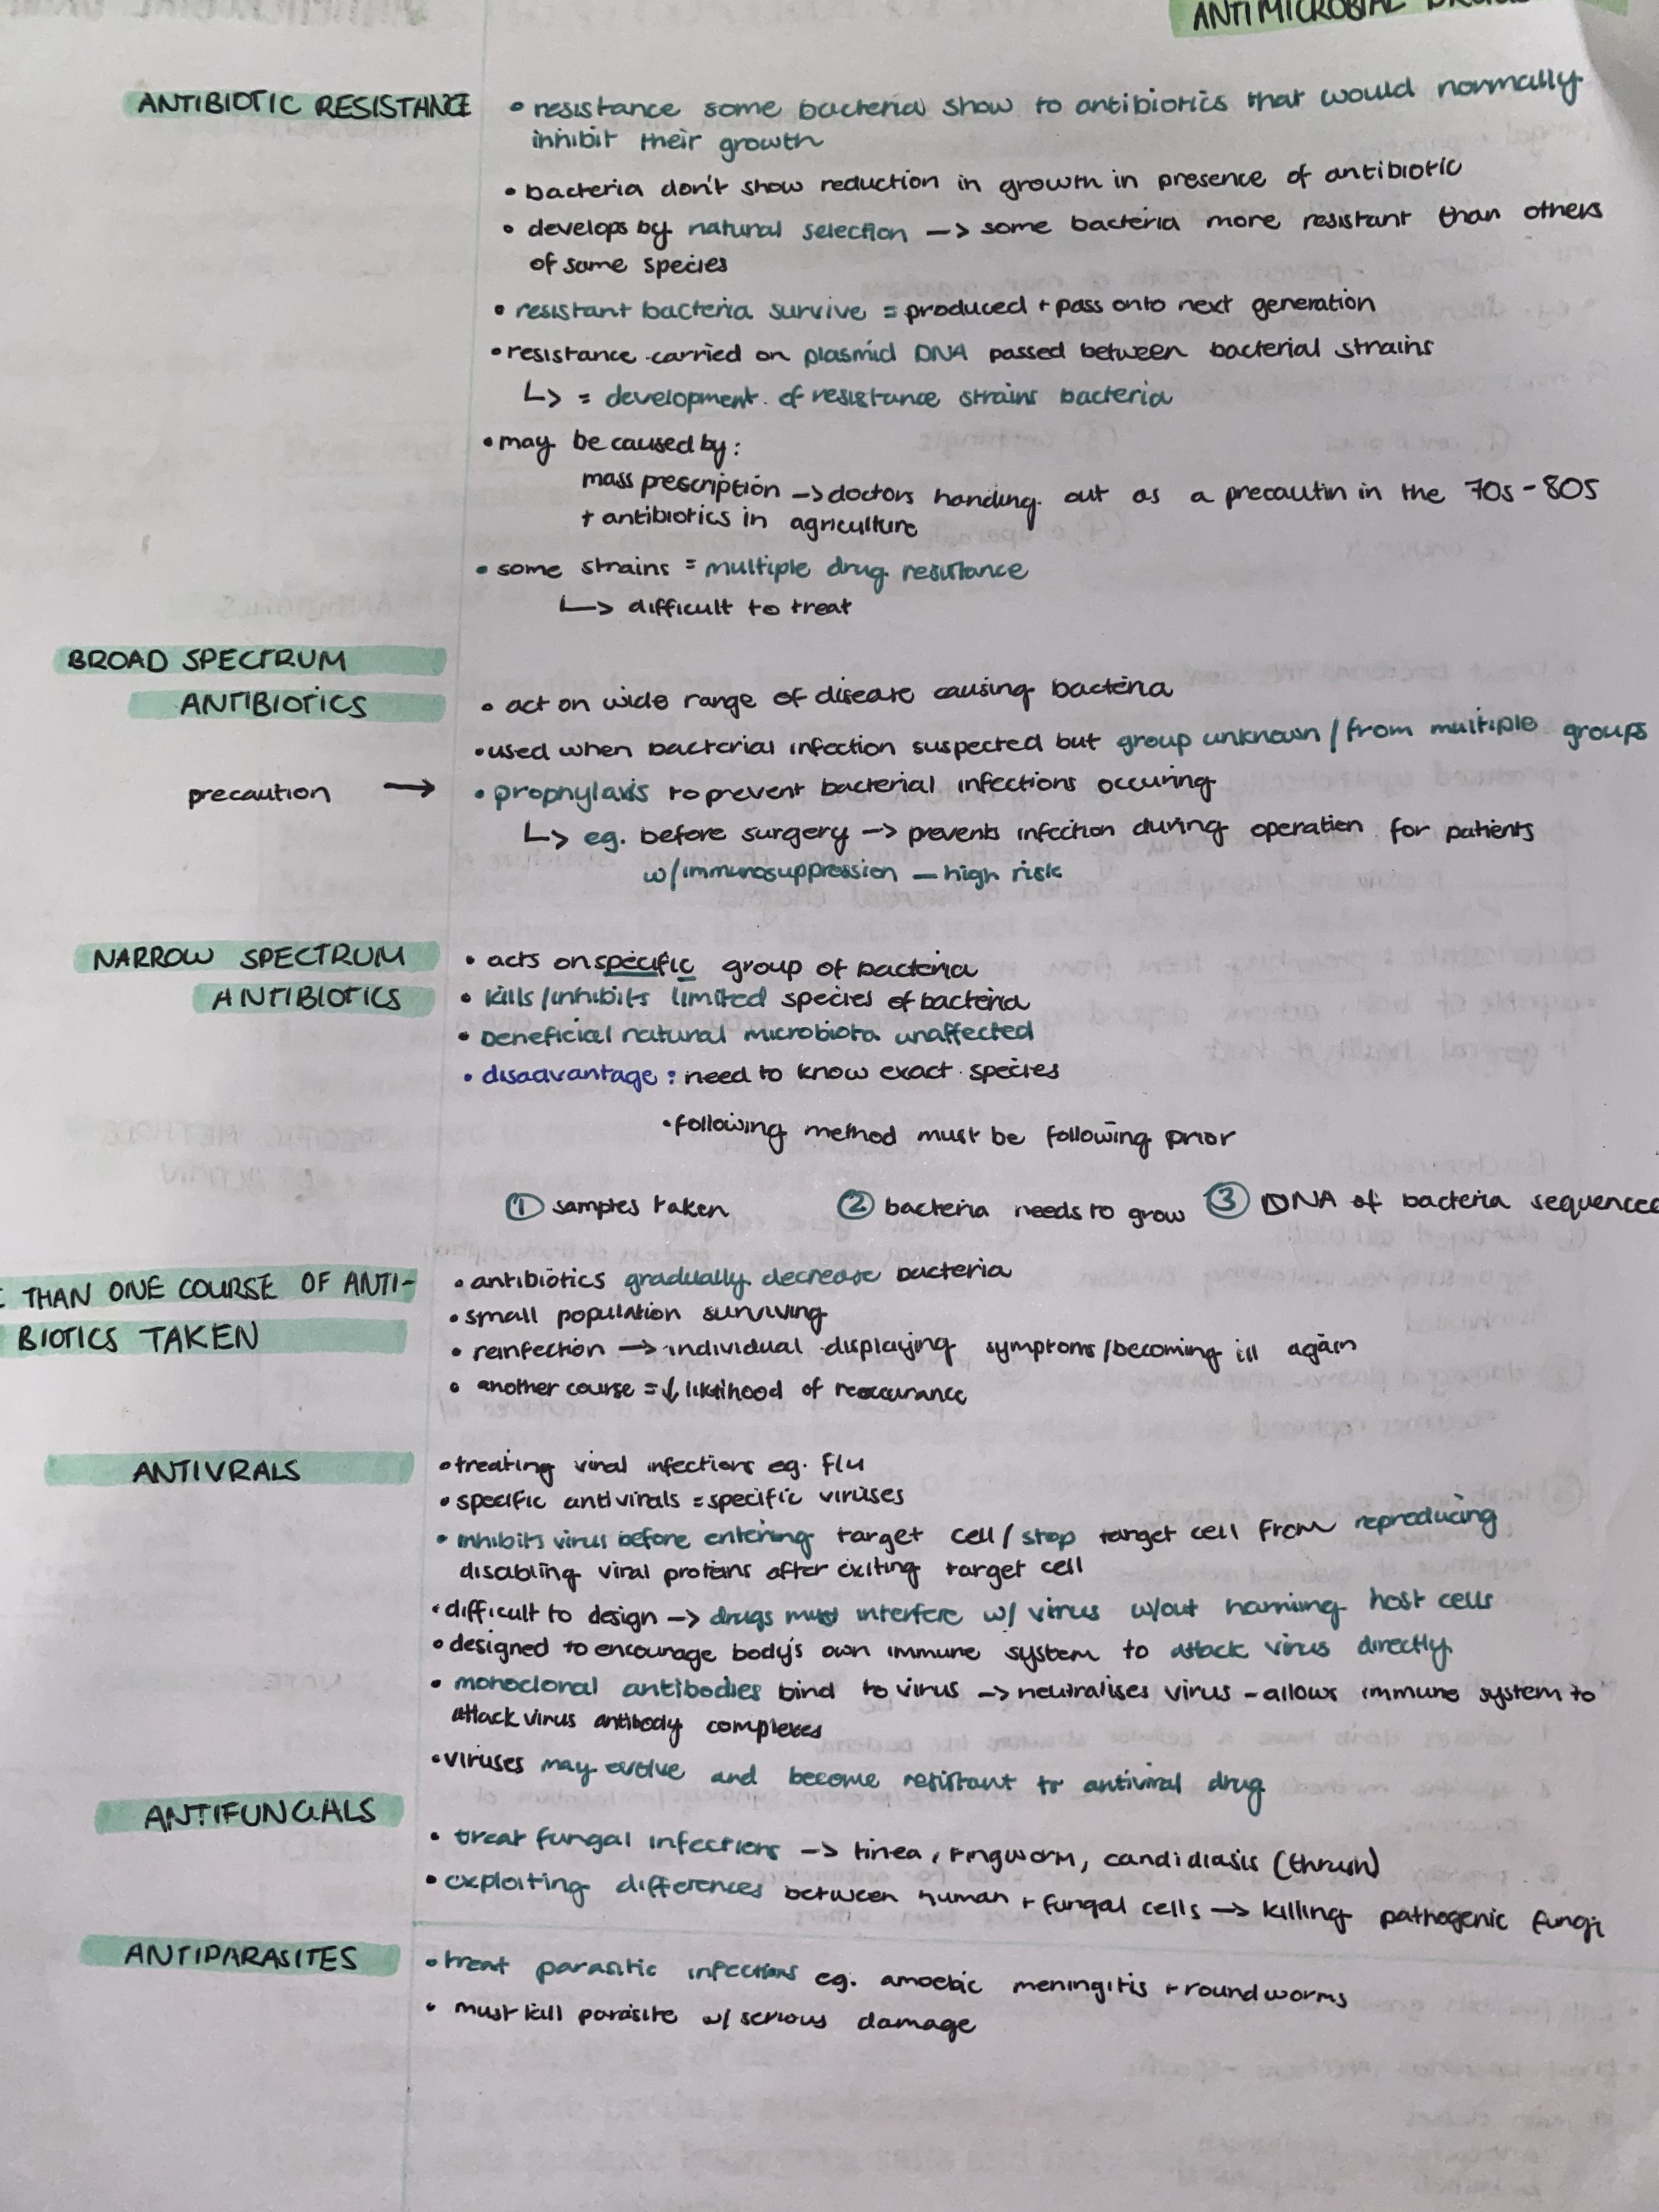 ANTIMICROBIAL DRUGS
ANTIBIOTIC RESISTANCE
• resistance some bacteria show to antibiotics that would normally
inhibit their growth
• bacteria don't show reduction in growth in presence of antibiotic
• develops by natural selection —> some bacteria more resistant than others
of same species
• resistant bacteria survive = produced + pass onto next generation
• resistance carried on plasmid DNA passed between bacterial strains
↳ = development of resistance strains bacteria
• may be caused by:
mass prescription —> doctors handing out as a precautin in the 70s - 80s
+ antibiotics in agriculture
• some strains = multiple drug resistance
↳ difficult to treat
BROAD SPECTRUM
ANTIBIOTICS
• act on wide range of disease causing bacteria
• used when bacterial infection suspected but group unknown / from multiple groups
precaution → • prophylaxis to prevent bacterial infections occuring
↳ eg. before surgery —> prevents infection during operation for patients
w/immunosuppression — high risk
NARROW SPECTRUM
ANTIBIOTICS
• acts on specific group of bacteria
• kills/inhibits limited species of bacteria
• beneficial natural microbiota unaffected
• disadvantage : need to know exact species
• following method must be following prior
① samples taken ② bacteria needs to grow ③ DNA of bacteria sequenced
THAN ONE COURSE OF ANTI-
BIOTICS TAKEN
• antibiotics gradually decrease bacteria
• small population surviving
• reinfection —> individual displaying symptoms/becoming ill again
• another course = ↓ liklihood of reoccurance
ANTIVRALS
• treating viral infections eg. flu
• specific antivirals = specific viruses
• inhibits virus before entering target cell / stop target cell from reproducing
disabling viral proteins after exiting target cell
• difficult to design —> drugs must interfere w/ virus w/out harming host cells
• designed to encourage body's own immune system to attack virus directly
• monoclonal antibodies bind to virus —> neutralises virus - allows immune system to
attack virus antibody complexes
• viruses may evolve and become resistant to antiviral drug
ANTIFUNGALS
• treat fungal infections —> tinea, ringworm, candidiasis (thrush)
• exploiting differences between human + fungal cells —> killing pathogenic fungi
ANTIPARASITES
• treat parasitic infections eg. amoebic meningitis + roundworms
• must kill parasite w/ serious damage